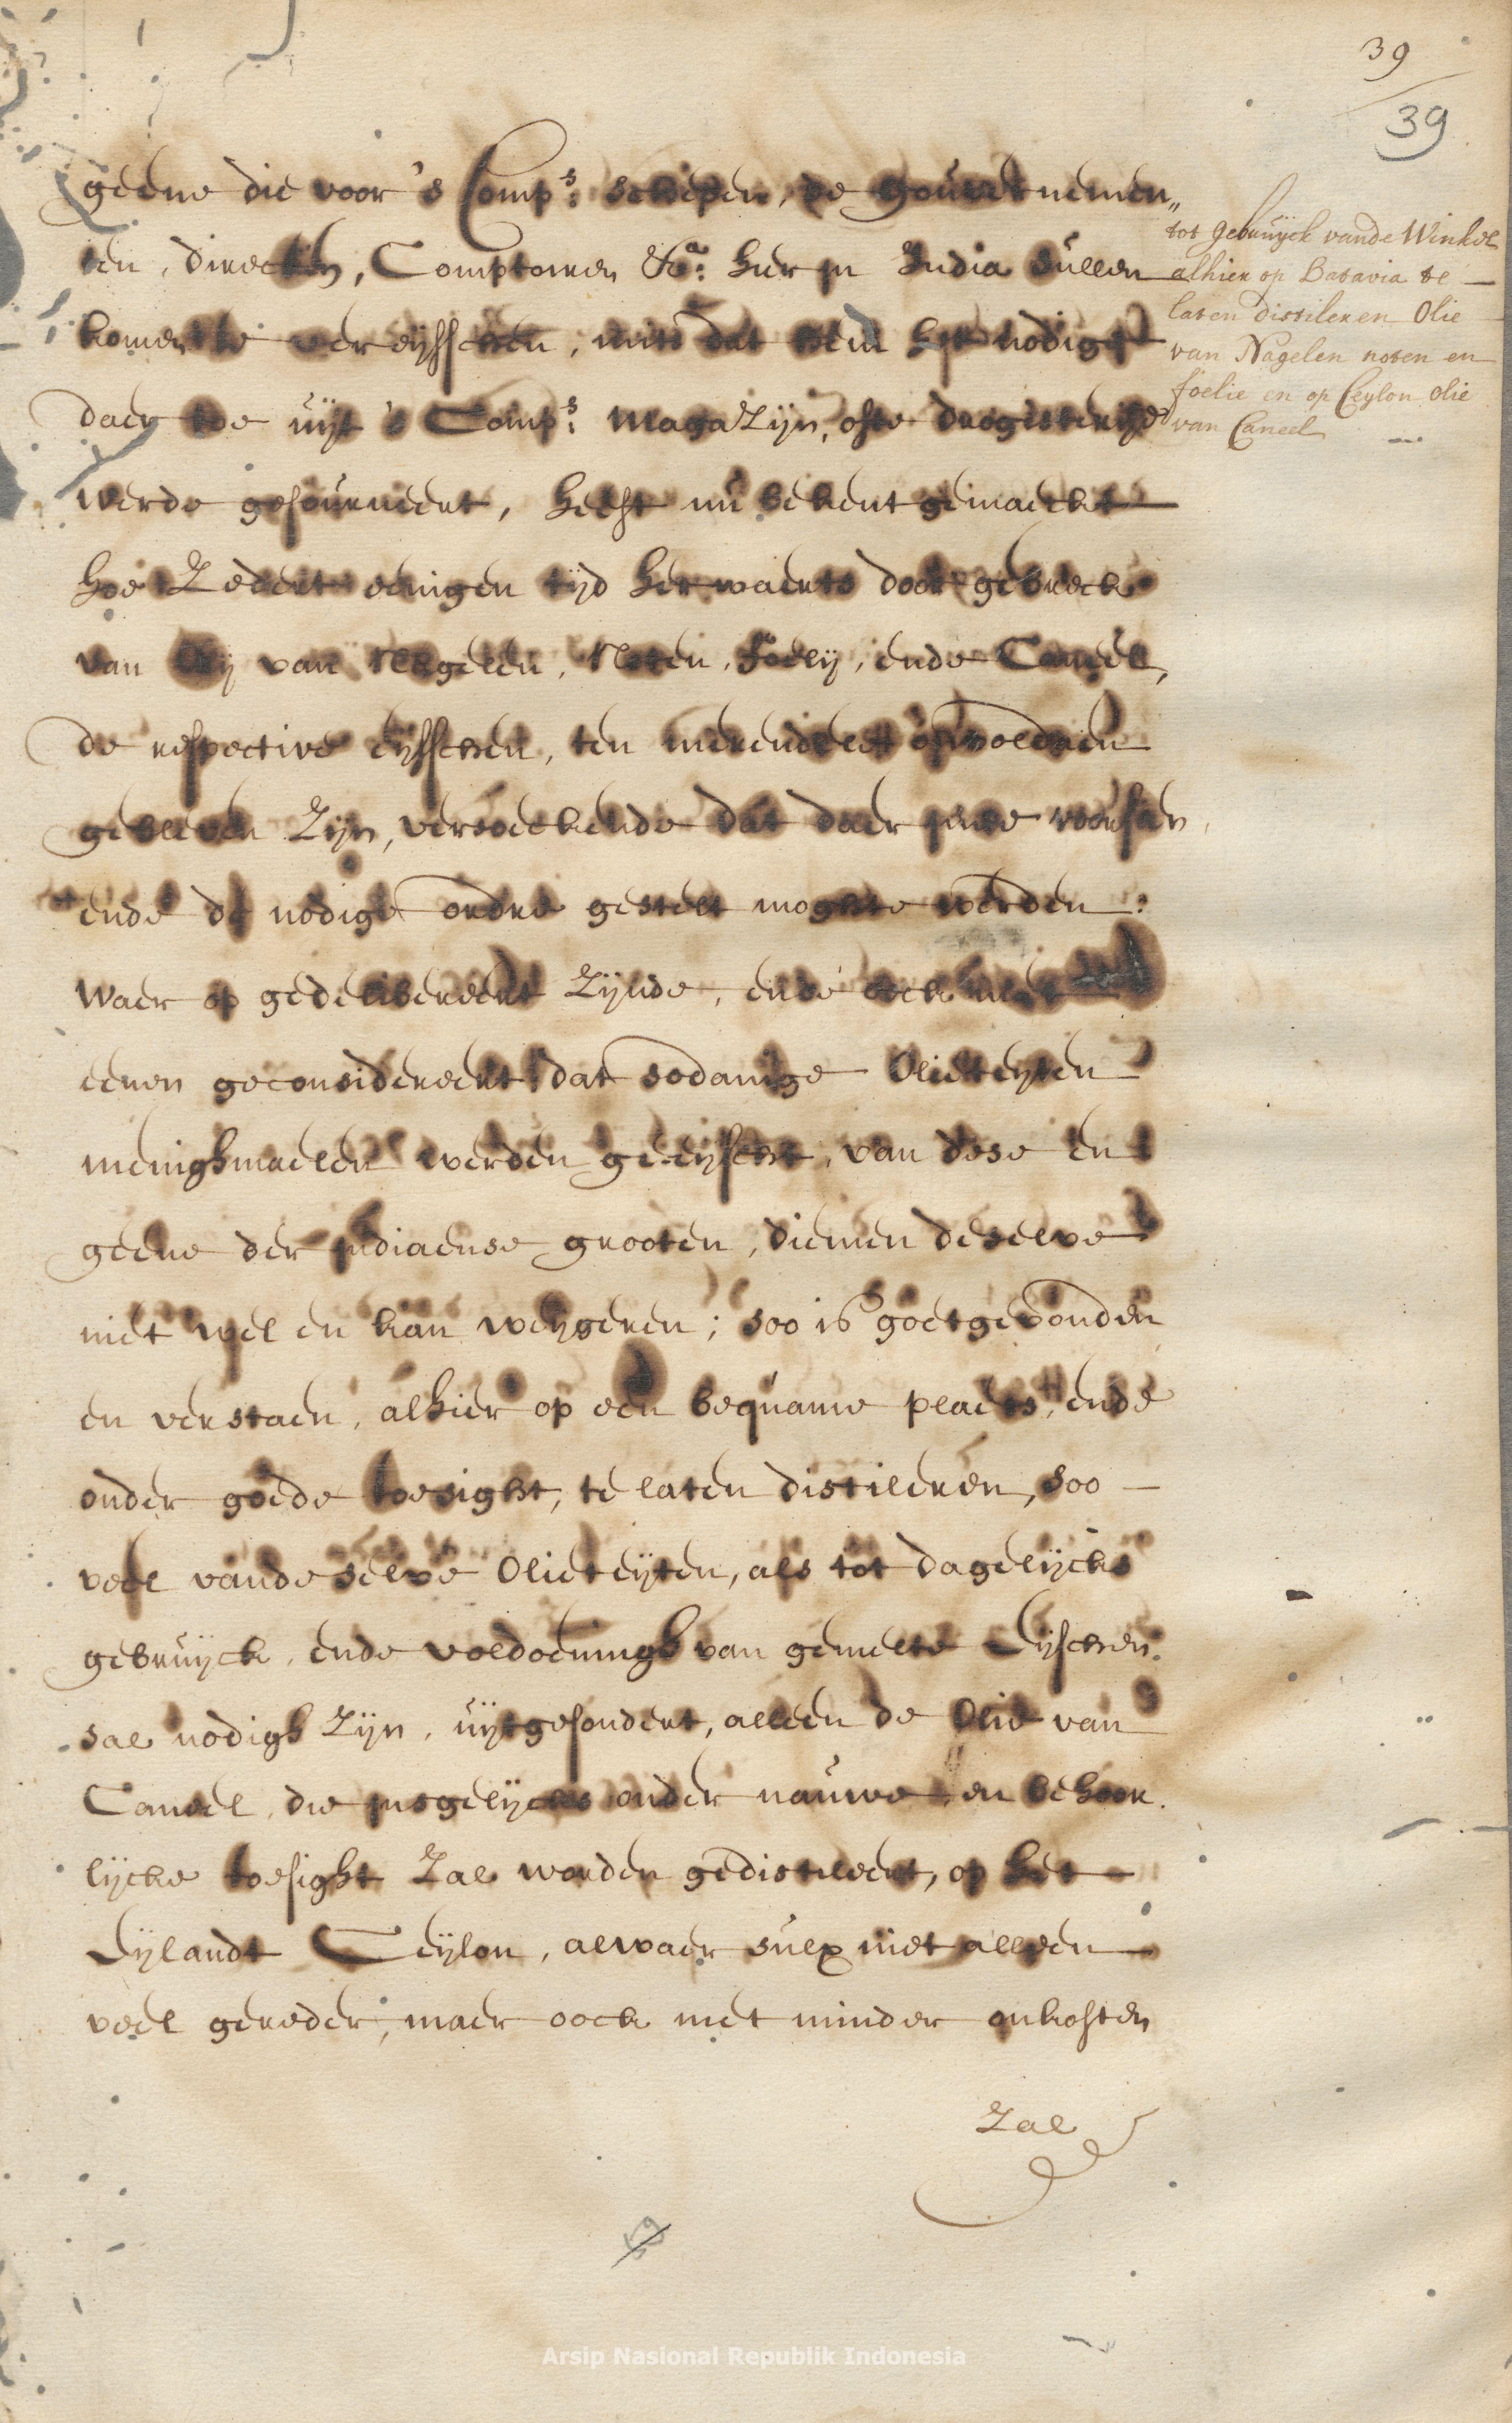 39
39
geene die voor 's Comp:s schepen, de gouvernemen„
ten, directien, Comptoiren &a: hier in India sullen
komen te vereijsschen, mits dat hem het nodige
daer toe uijt 's Comp:s magaZijn, ofte drogisterije
werde gefourneert, heeft nu bekent gemaeckt
hoe Zedert eenigen tijd herwaerts door gebreck
van olij van Nagelen, Noten, Foelij, ende Caneel,
de respective eijsschen, ten merendeele onvoldaen
gebleven Zijn, versoeckende dat daer inne voorsien,
ende de nodige ordre gestelt moghte werden:
waer op gedelibereert Zijnde, ende oock met
eenen geconsidereert dat sodanige Olieteijten
menighmaelen werden geeijscht, van dese en
geene der indiaense grooten, diemen deselve
niet wel en kan weijgeren; soo is goetgevonden
en verstaen, alhier op een bequame plaets, ende
onder goede toesight, te laten distileren, soo
veel vande selve Olieteijten, als tot dagelijcks
gebruijck, ende voldoeningh van gemelte Eijschen.
sal nodigh Zijn, uijtgesondert, alleen de Olie van
Caneel, die insgelijcks onder nauwe en behoor.
lijcke toesight Zal worden gedistileert, op het
Eijlandt Ceijlon, alwaer sulx niet alleen
veel gereder, maer oock met minder onkosten
Zal
tot gebruijck vande Winkel
alhier op Batavia te
laten distileren Olie
van Nagelen noten en
foelie en op Ceylon olie
van Caneel
Arsip Nasional Republik Indonesia